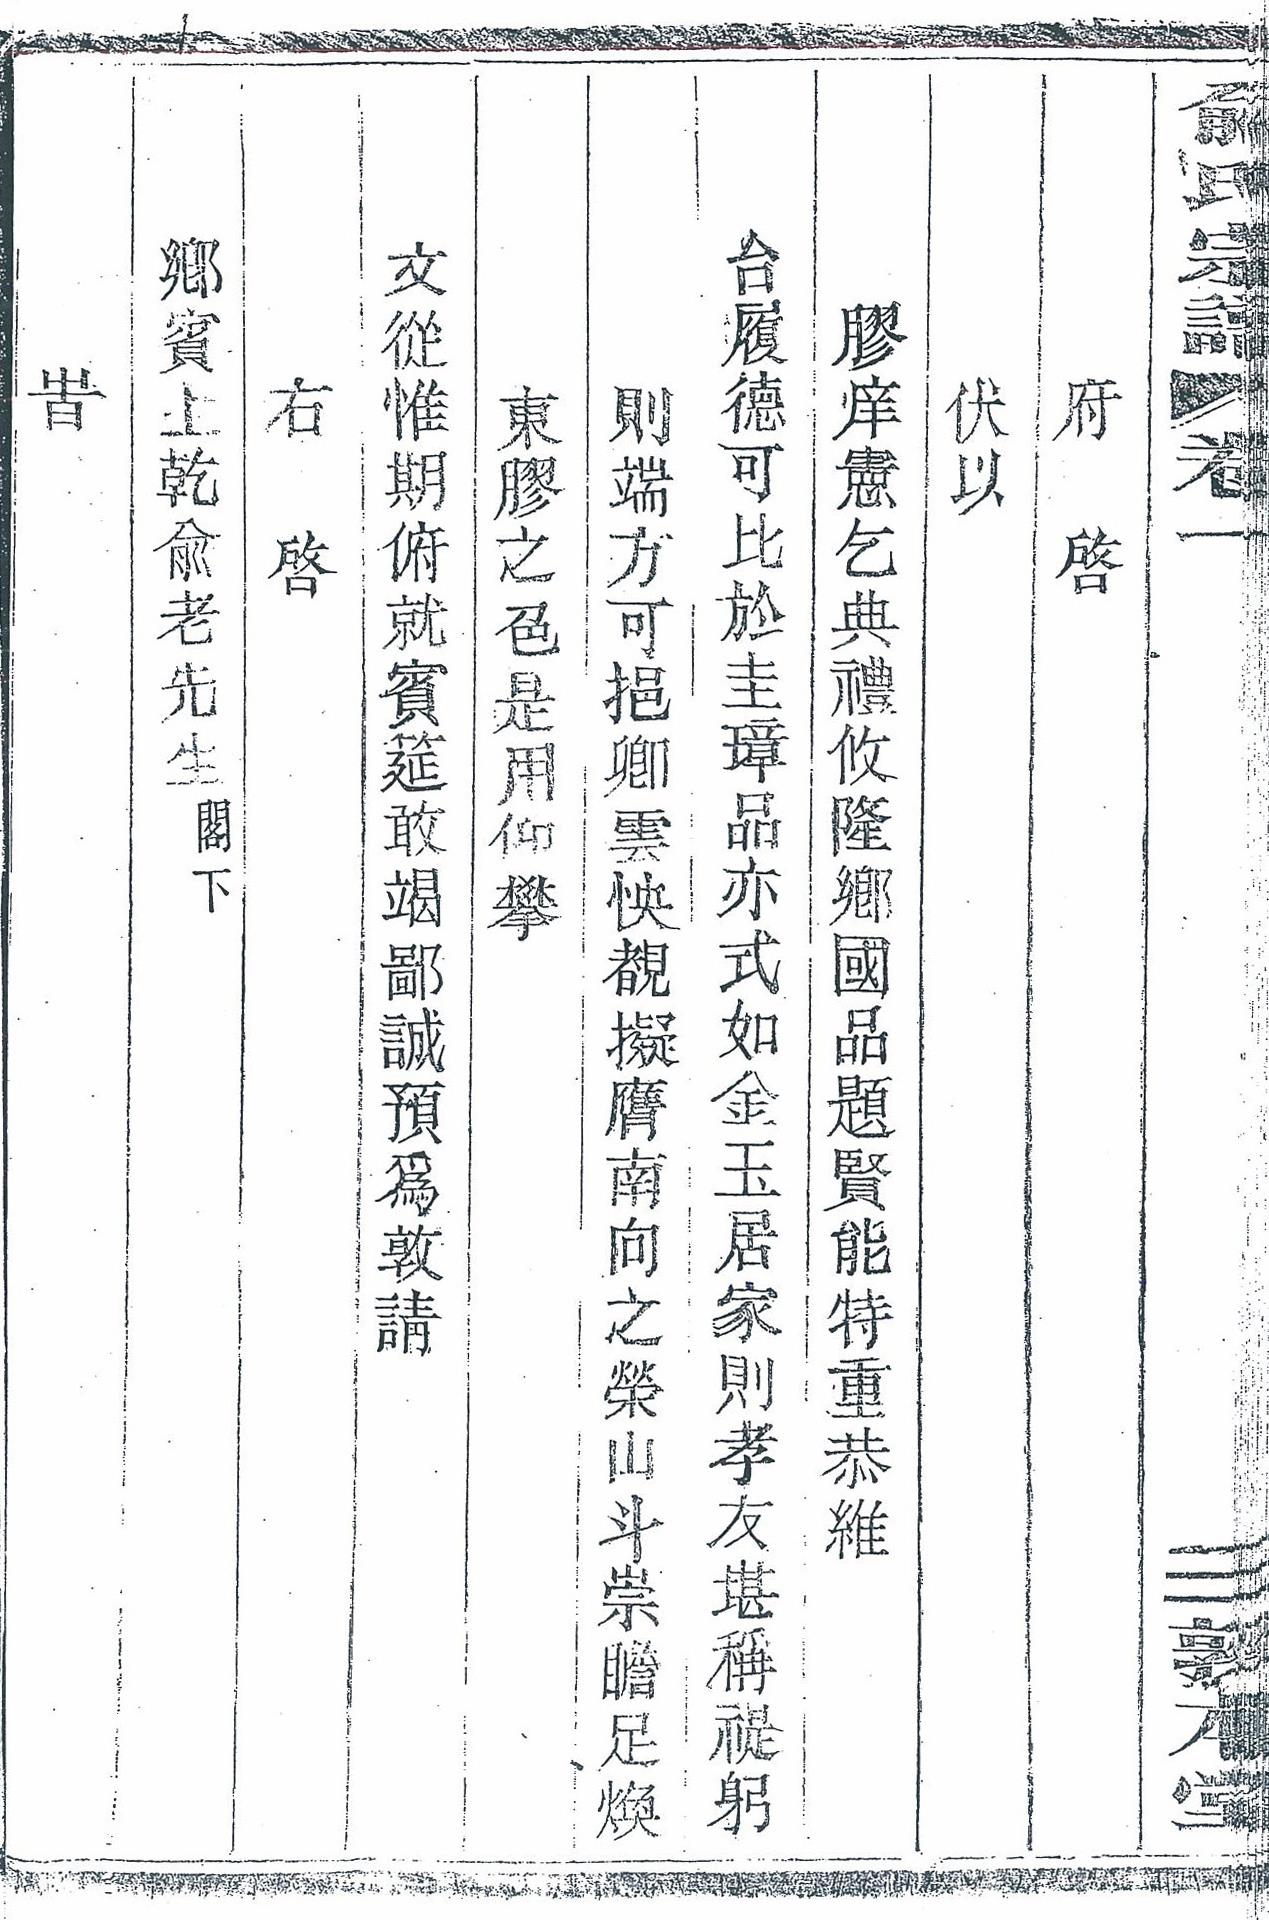 俞氏宗譜 卷一 三 敦本堂
府 啓
伏以
膠庠憲乞典禮攸隆鄉國品題賢能特重恭維
台履德可比於圭璋品亦式如金玉居家則孝友堪稱禔躬
則端方可挹卿雲快覩擬膺南向之榮山斗崇瞻足煥
東膠之色是用仰攀
文從惟期俯就賓筵敢竭鄙誠預爲敦請
右 啓
鄉賓上乾俞老先生閣下
旹